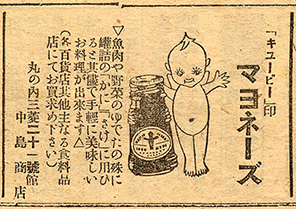 「キユーピー印
マヨネーズ
▽魚肉や野菜のゆでたの殊に
罐詰の「かに」「さけ」に用ひ
ると其儘で手軽に美味しい
お料理が出來ます△
(各百貨店其他主なる食料品
店にてお買求め下さい)
丸の内三菱二十一號館
中島商店